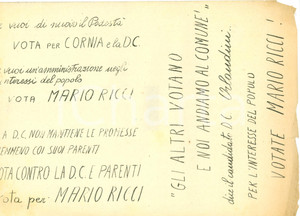 vuoi di nuovo il Podestà
VOTA PER CORNIA e la D.C.
vuoi un'amministrazione negli
interessi del popolo
VOTA MARIO RICCI
LA D.C. NON MANTIENE LE PROMESSE
NEMMENO COI SUOI PARENTI
VOTA CONTRO LA D.C. E PARENTI
vota per: MARIO RICCI
"GLI ALTRI VOTANO
E NOI ANDIAMO AL COMUNE"
dice il candidato D.C. Orlandini.
PER L'INTERESSE DEL POPOLO
VOTATE MARIO RICCI!